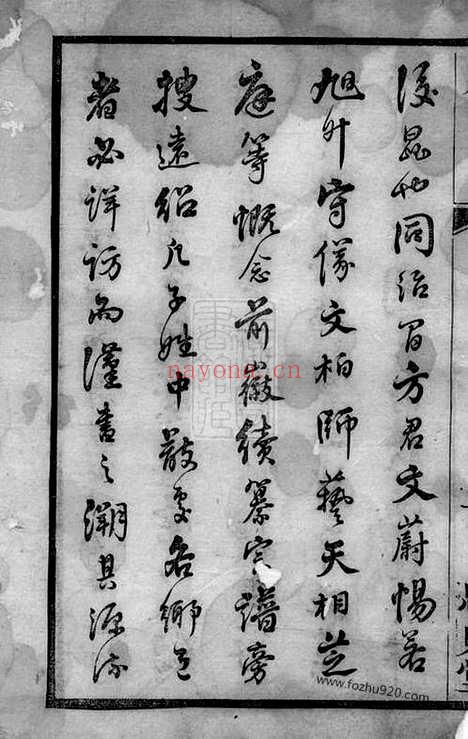 後昆也同治間方君文蔚惕若
旭升守儀文柏師藝天相芝
庭等慨念前徽續纂宗譜旁
搜遠紹凡子姓中散處各鄉邑
者必詳訪而謹書之溯其源流
nayona.cn
www.fozhu920.com